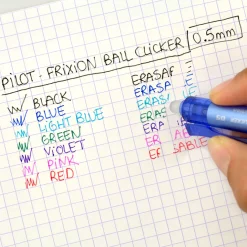 PILOT - FRIXION BALL CLICKER 0.5mm
BLACK ERASAB
BLUE ERASA
LIGHT BLUE ERASA
GREEN ERAS
VIOLET ERA
PINK ER AB
RED ER SABLE